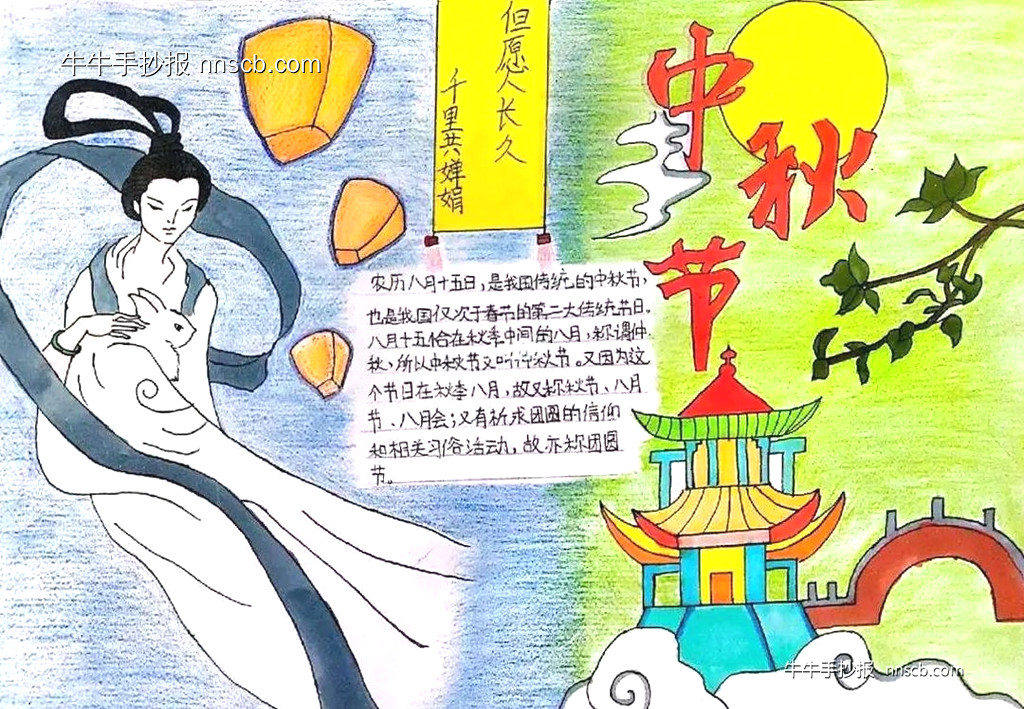 牛牛手抄报 nnscb.com
但愿人长久
千里共婵娟
中秋节
农历八月十五日，是我国传统的中秋节，
也是我国仅次于春节的第二大传统节日。
八月十五恰在秋季中间的八月，称谓仲
秋，所以中秋节又叫仲秋节。又因为这
个节日在秋季八月，故又称秋节、八月
节、八月会；又有祈求团圆的信仰
和相关习俗活动，故亦称团圆
节。
牛牛手抄报 nnscb.com